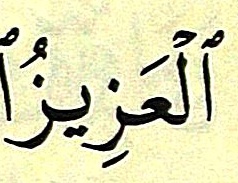 ٱلْعَزِيزُ ٱ